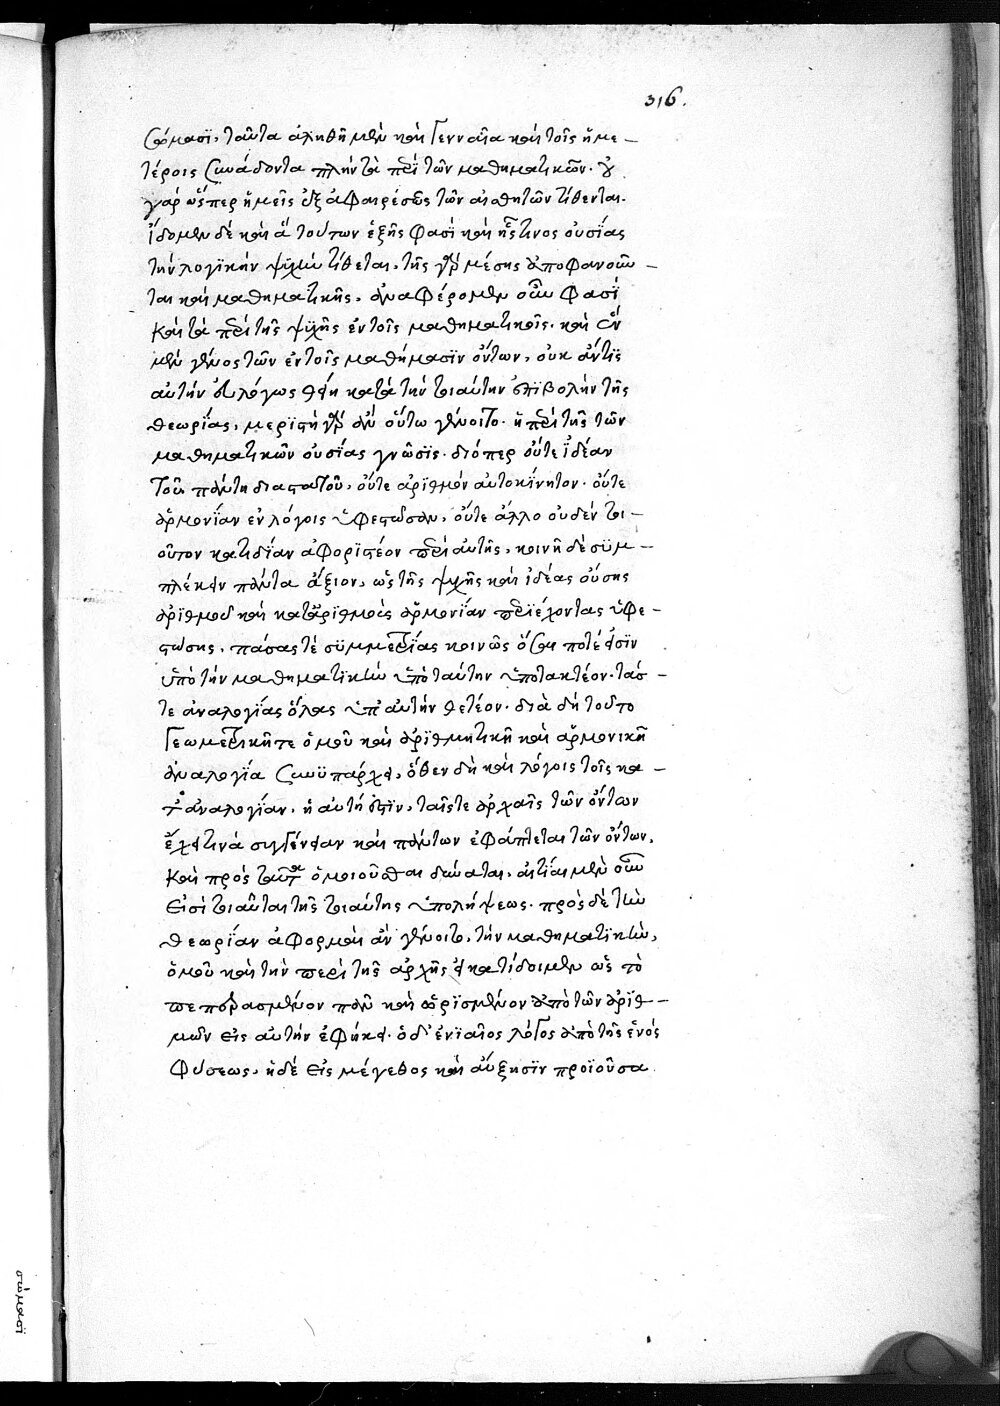 316.
σώμασϊ, ταῦτα ἀληθῆ μὲν καὶ γενναῖα καὶ τοῖς ἡμε-
τέροις συνάδοντα πλὴν τὰ περὶ τῶν μαθηματικῶν. οὐ
γὰρ ὥσπερ ἡμεῖς ἐξ ἀφαιρέσεως τῶν αἰσθητῶν τίθενται.
ἴδομεν δὲ καὶ ἃ τούτων ἑξῆς φασὶ καὶ ἧς τινος οὐσίας
τὴν λογικὴν ψυχὴν τίθεται, τῆς γὰρ μέσης ἀποφανοῦν-
ται καὶ μαθηματικῆς, ἀναφέρομεν οὖν φασϊ
καὶ τὰ περὶ τῆς ψυχῆς ἐν τοῖς μαθηματικοῖς. καὶ ἓν
μὲν γένος τῶν ἐν τοῖς μαθήμασϊν ὄντων, οὐκ ἄν τϊς
αὐτὴν εὐλόγως θείη κατὰ τὴν τοιαύτην ἐπϊβολὴν τῆς
θεωρίας, μερϊστὴ γὰρ ἂν οὕτω γένοιτο. ἡ περὶ τῆς τῶν
μαθηματικῶν οὐσίας γνῶσϊς. διόπερ οὔτε ἰδέαν
τοῦ πάντη διαστατοῦ, οὔτε ἀρϊθμὸν αὐτοκίνητον. οὔτε
ἁρμονΐαν ἐν λόγοις ὑφεστῶσαν, οὔτε ἄλλο οὐδὲν τοι-
οῦτον κατιδίαν ἀφορϊστέον περὶ αὐτῆς, κοινῇ δὲ σϋμ-
πλέκειν πάντα ἄξιον, ὡς τῆς ψυχῆς καὶ ἰδέας οὔσης
ἀρϊθμοῦ καὶ κατἀρϊθμοὺς ἁρμονΐαν περϊέχοντας ὑφε-
στώσης, πάσας τὲ σϋμμετρΐας κοινῶς ὅσαι ποτέ εἰσϊν
ὑπὸ τὴν μαθηματϊκὴν ὑπὸ ταύτην ὑποτακτέον. τάσ-
τε ἀναλογΐας ὅλας ὑπ' αὐτὴν θετέον. διὰ δὴ τοῦτο
γεωμετρικῇ τε ὁμοῦ καὶ ἀρϊθμητικῇ καὶ ἁρμονικῇ
ἀναλογΐα συνϋπάρχει, ὅθεν δὴ καὶ λόγοις τοῖς κα-
τ' ἀναλογΐαν, ἡ αὐτή ἐστϊν, ταῖς τε ἀρχαῖς τῶν ὄντων
ἔχει τινὰ συγγένειαν καὶ πάντων ἐφάπτεται τῶν ὄντων,
καὶ πρὸς πάντα ὁμοιοῦσθαι δύναται, αἰτΐαι μὲν οὖν
εἰσὶ τοιαῦται τῆς τοιαύτης ὑπολήψεως. πρὸς δὲ τὴν
θεωρΐαν ἀφορμαὶ ἂν γένοιτο, τὴν μαθηματϊκὴν,
ὁμοῦ καὶ τὴν περὶ τῆς ἀρχῆς εἰ κατίδοιμεν ὡς τὸ
πεπερασμένον πᾶν καὶ ὡρϊσμένον ἀπὸ τῶν ἀρϊθ-
μῶν εἰς αὐτὴν ἐφήκει. ὁ δ' ἑνϊαῖος λόγος ἀπὸ τῆς ἑνὸς
φύσεως, ἡ δὲ εἰς μέγεθος καὶ αὔξησϊν προϊοῦσα
σώμασϊ